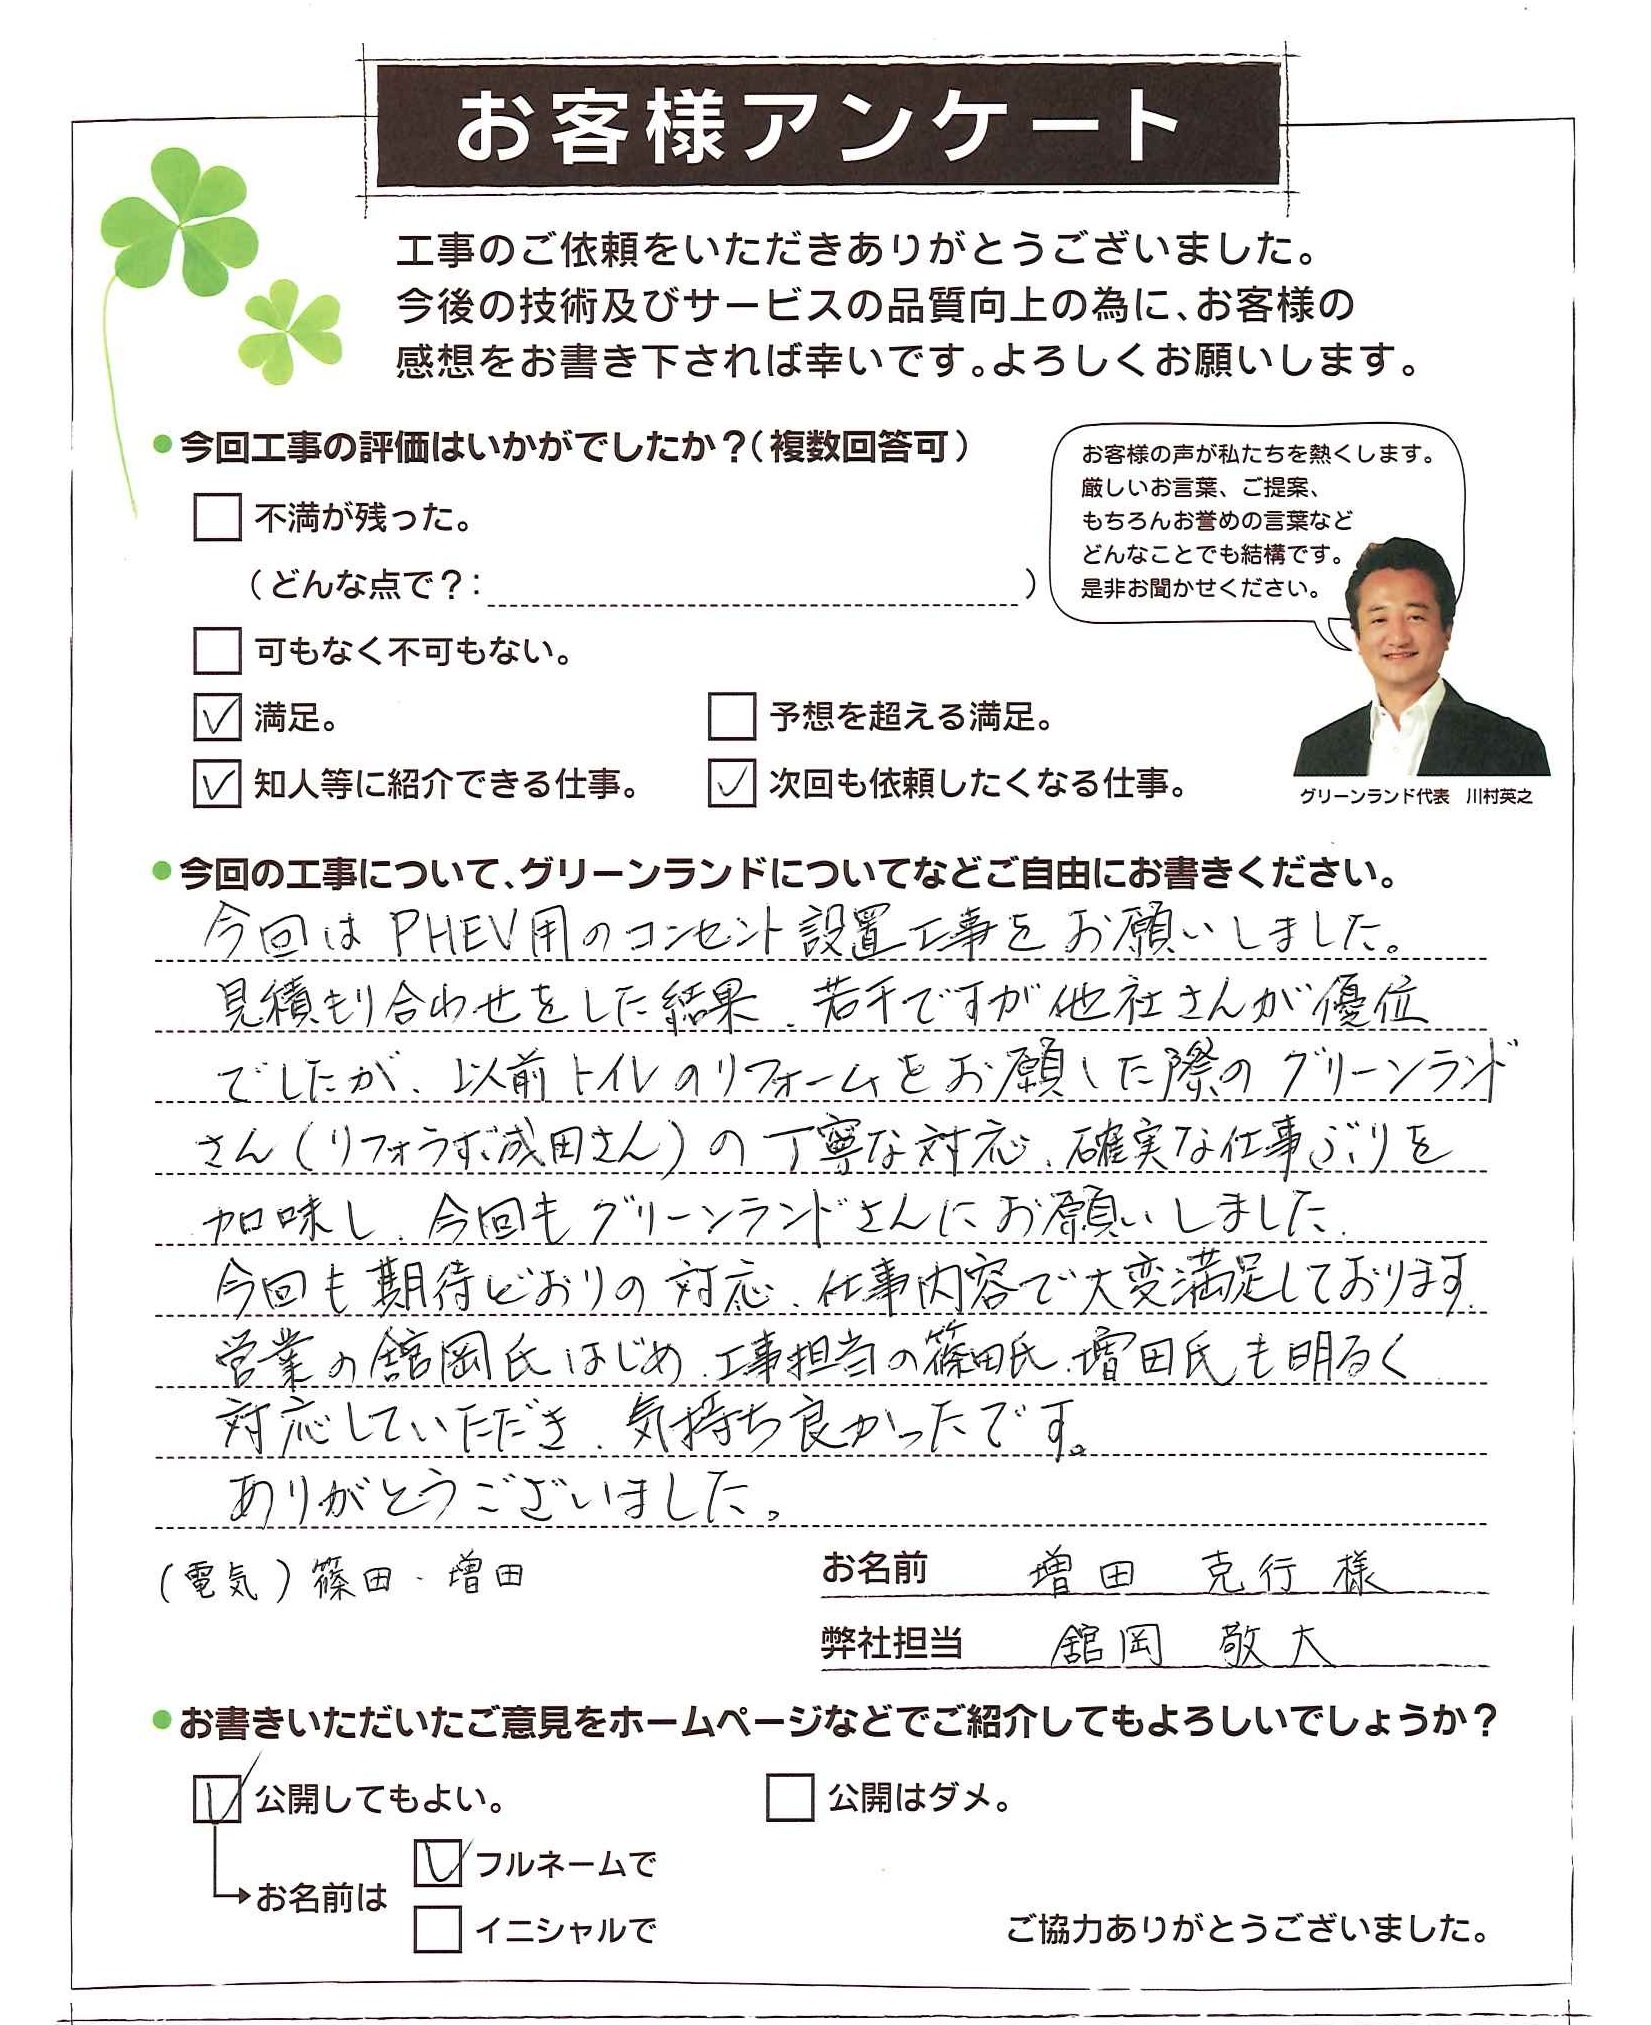 お客様アンケート
工事のご依頼をいただきありがとうございました。
今後の技術及びサービスの品質向上の為に、お客様の
感想をお書き下されば幸いです。よろしくお願いします。
●今回工事の評価はいかがでしたか？（複数回答可）
お客様の声が私たちを熱くします。
厳しいお言葉、ご提案、
もちろんお誉めの言葉など
どんなことでも結構です。
是非お聞かせください。
不満が残った。
（どんな点で？：　　　）
可もなく不可もない。
満足。　予想を超える満足。
知人等に紹介できる仕事。　次回も依頼したくなる仕事。
グリーンランド代表　川村英之
●今回の工事について、グリーンランドについてなどご自由にお書きください。
今回はPHEV用のコンセント設置工事をお願いしました。
見積もり合わせをした結果、若干ですが他社さんが優位
でしたが、以前トイレのリフォームをお願した際のグリーンランド
さん（リフォらず成田さん）の丁寧な対応、確実な仕事ぶりを
加味し、今回もグリーンランドさんにお願いしました。
今回も期待どおりの対応、仕事内容で大変満足しております。
営業の舘岡氏はじめ、工事担当の篠田氏、増田氏も明るく
対応していただき、気持ち良かったです。
ありがとうございました。
（電気）篠田・増田
お名前　増田　克行様
弊社担当　舘岡　敬大
●お書きいただいたご意見をホームページなどでご紹介してもよろしいでしょうか？
公開してもよい。　公開はダメ。
フルネームで
お名前は
イニシャルで
ご協力ありがとうございました。